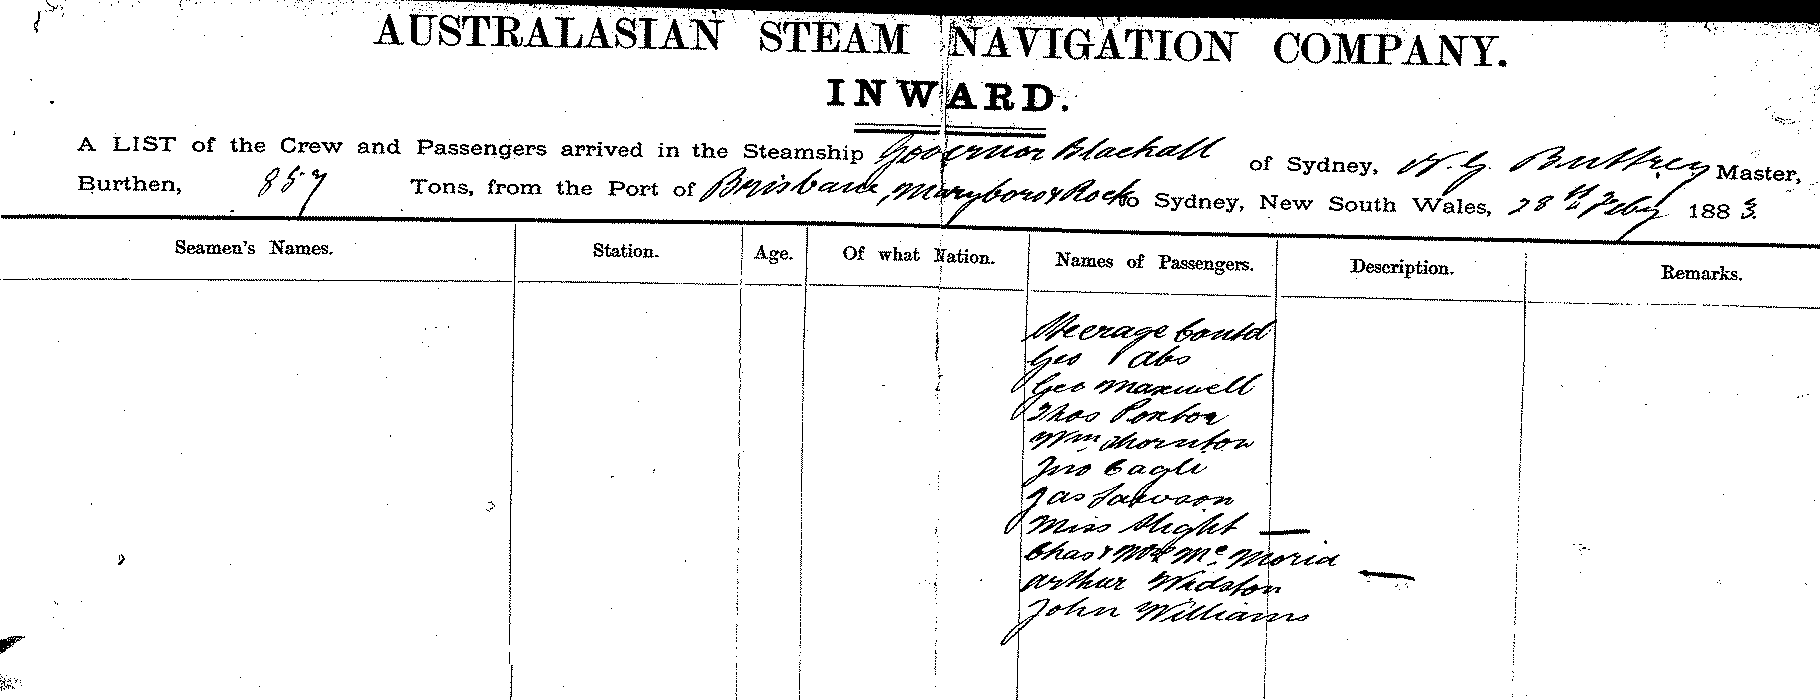 AUSTRALASIAN STEAM NAVIGATION COMPANY.
INWARD.
A LIST of the Crew and Passengers arrived in the Steamship Governor Blackall of Sydney, W. G. Buttrey Master,
Burthen, 857 Tons, from the Port of Brisbane, Maryboro & Rock to Sydney, New South Wales, 28th Feby 1883.
Seamen's Names. Station. Age. Of what Nation. Names of Passengers. Description. Remarks.
Steerage Contd
Geo Abs
Geo Maxwell
Thos
Wm Thornton
Jno Cagle
Jas Lawson
Miss Slight —
Chas & Mrs Mc
Arthur
John Williams